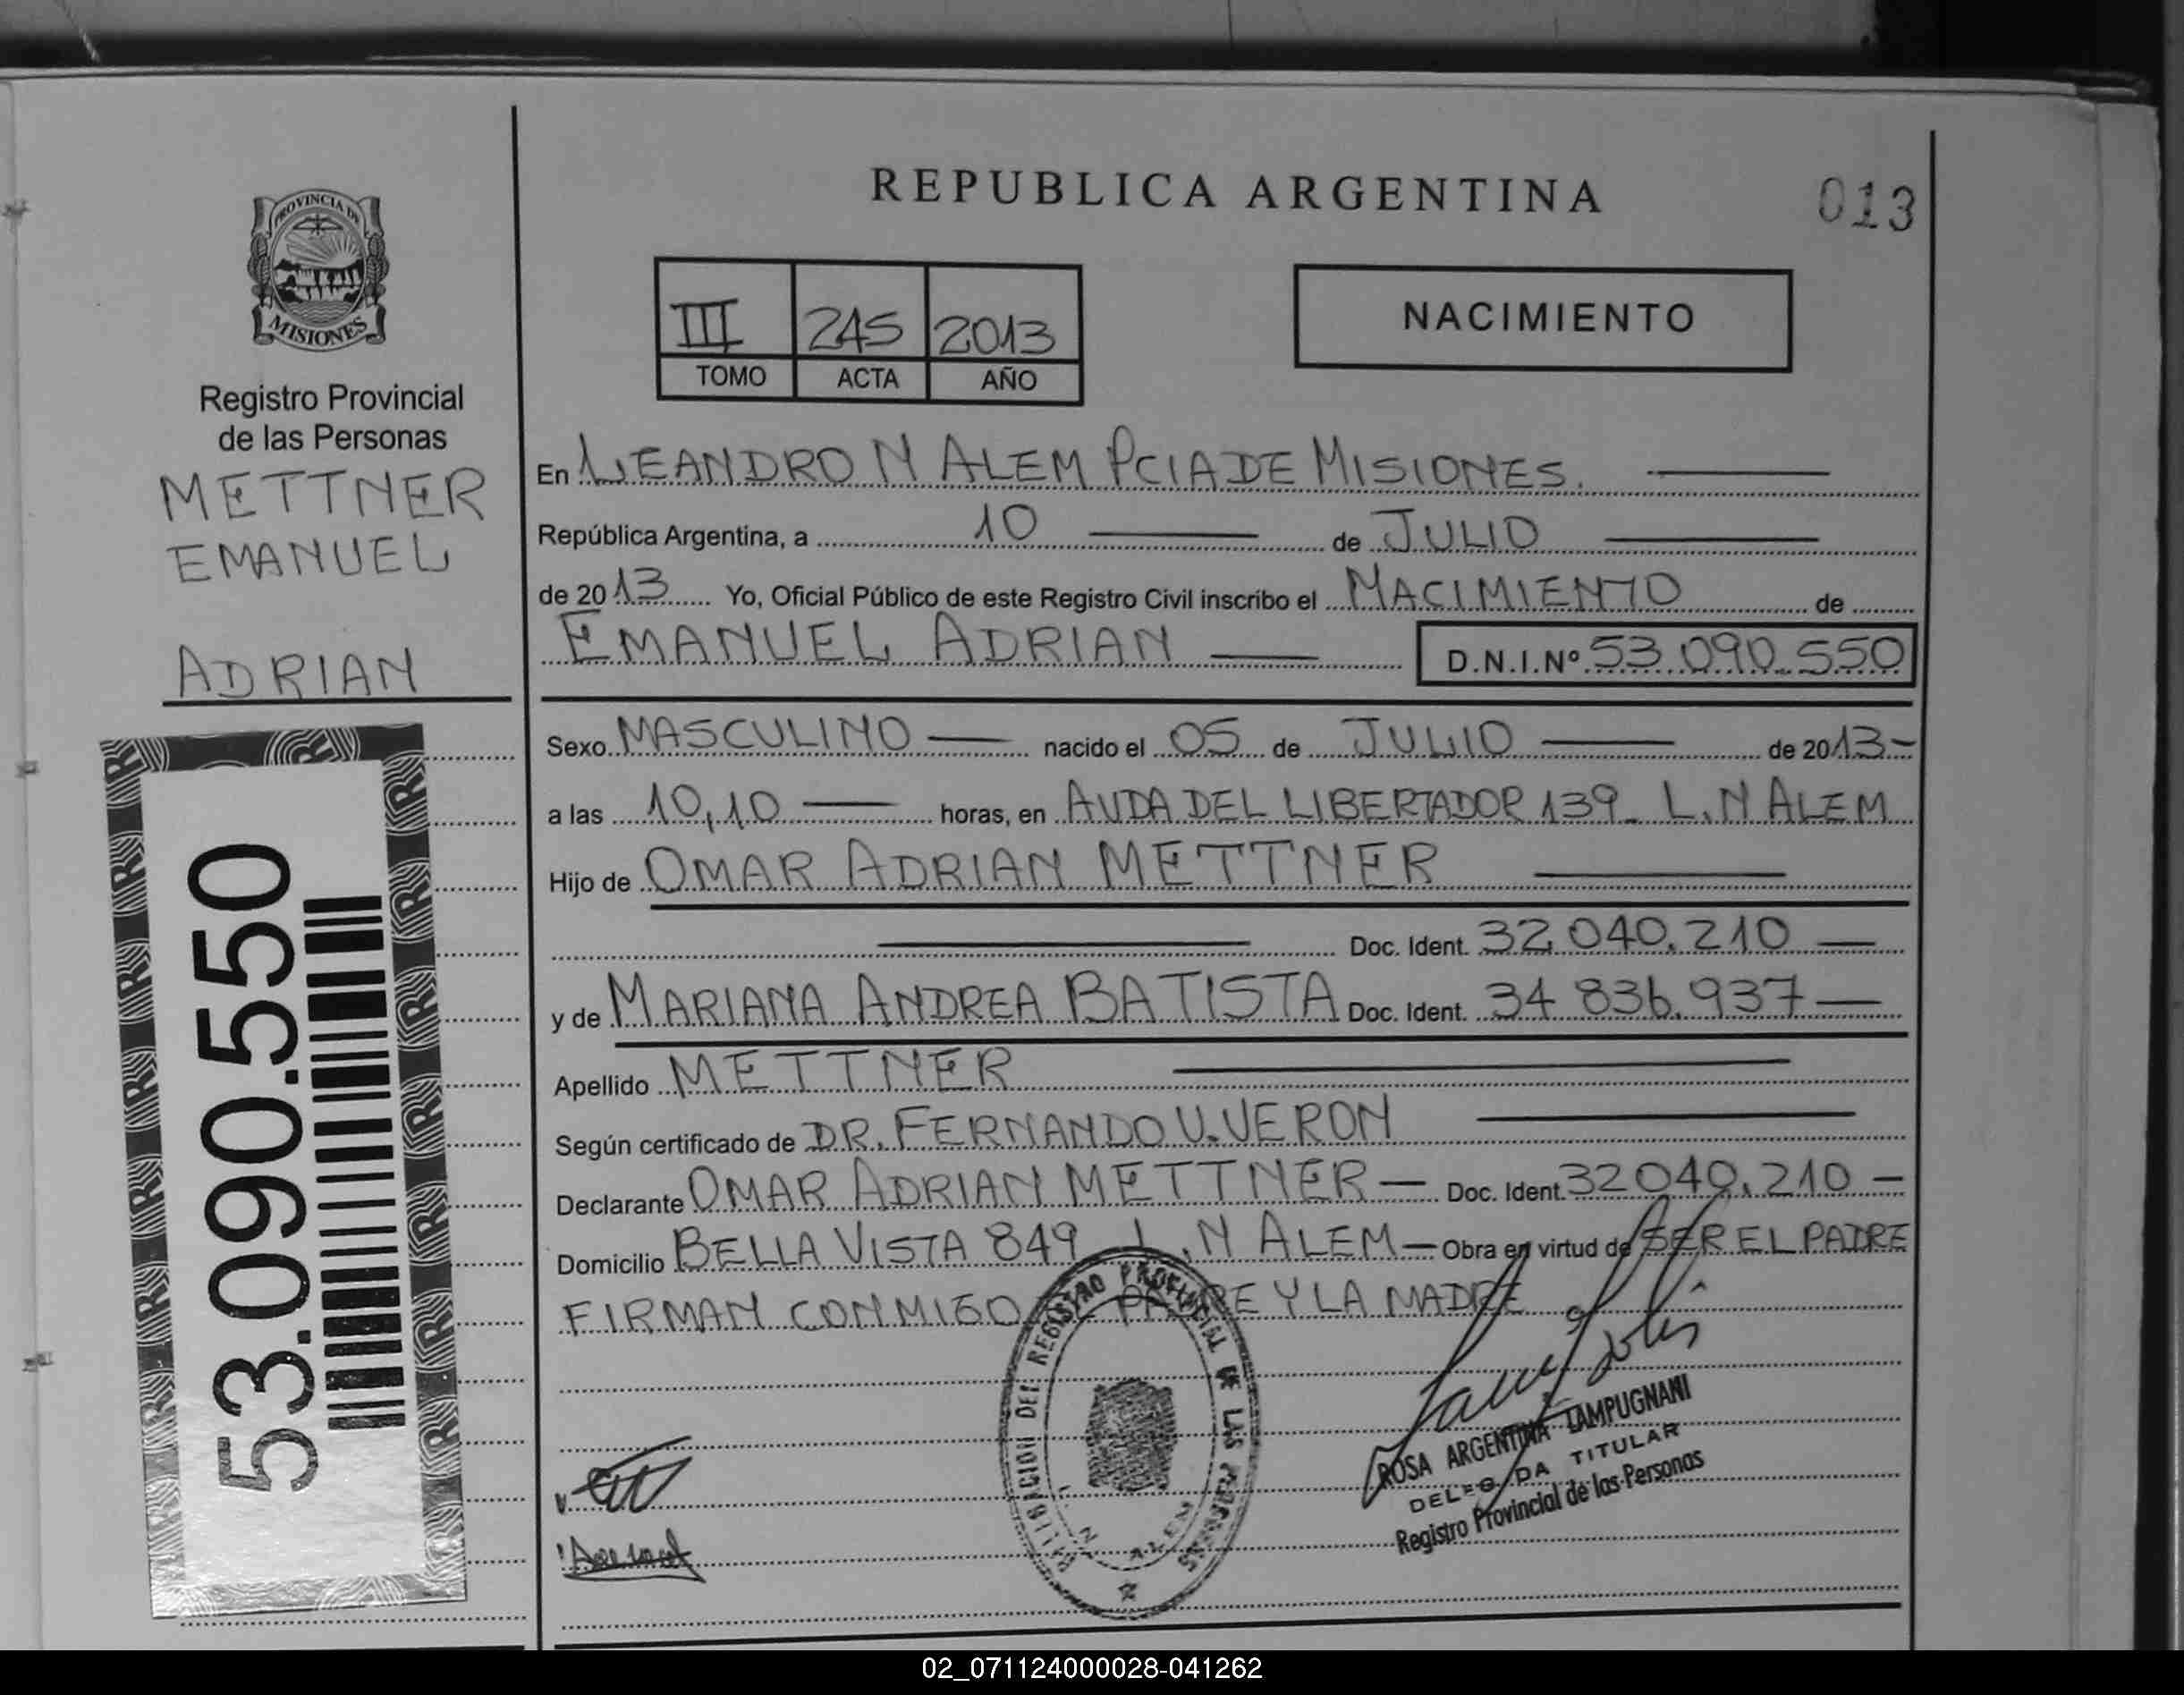 PROVINCIA DE
MISIONES
Registro Provincial
de las Personas
METTNER
EMANUEL
ADRIAN
53.090.550
REPUBLICA ARGENTINA
013
III 245 2013
TOMO ACTA AÑO
NACIMIENTO
En LEANDRO N ALEM PCIA DE MISIONES.
República Argentina, a 10 de JULIO
de 2013 Yo, Oficial Público de este Registro Civil inscribo el NACIMIENTO de
EMANUEL ADRIAN D.N.I.Nº 53.090.550
Sexo MASCULINO nacido el 05 de JULIO de 2013-
a las 10,10 horas, en AVDA DEL LIBERTADOR 139_ L.N ALEM
Hijo de OMAR ADRIAN METTNER
Doc. Ident. 32.040.210
y de MARIANA ANDREA BATISTA Doc. Ident. 34 836.937
Apellido METTNER
Según certificado de DR. FERNANDO V. VERON
Declarante OMAR ADRIAN METTNER Doc. Ident. 32040.210
Domicilio BELLA VISTA 849 L.N ALEM Obra en virtud de SER EL PADRE
FIRMAN CONMIGO PADRE Y LA MADRE
DEL REGISTRO PROVINCIAL DE LAS PERSONAS
L. N. ALEM
ROSA ARGENTINA LAMPUGNANI
DELEGADA TITULAR
Registro Provincial de las Personas
02_071124000028-041262